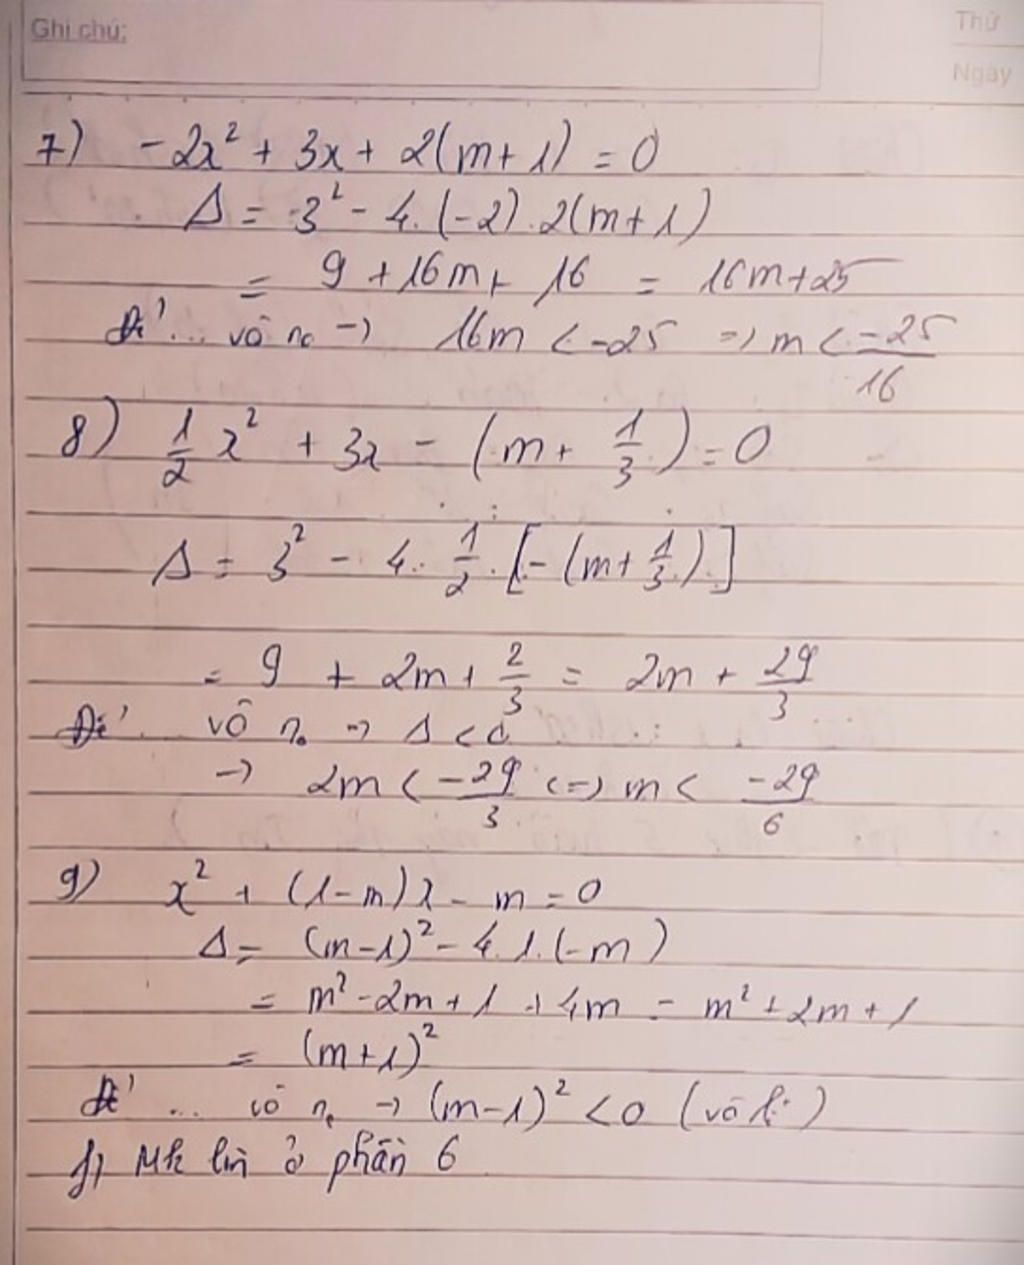 Ghi chú:
Thứ
Ngày
7) -2x² + 3x + 2(m+1) = 0
Δ = 3² - 4.(-2).2(m+1)
= 9 + 16m + 16 = 16m+25
Để ... vô n₀ → 16m < -25 => m < -25/16
8) 1/2 x² + 3x - (m + 1/3) = 0
Δ = 3² - 4. 1/2 . [-(m + 1/3)]
= 9 + 2m + 2/3 = 2m + 29/3
Để ... vô n₀ → Δ < 0
→ 2m < -29/3 <=> m < -29/6
9) x² + (1-m)x - m = 0
Δ = (m-1)² - 4.1.(-m)
= m² - 2m + 1 + 4m = m² + 2m + 1
= (m+1)²
Để ... vô n₀ → (m-1)² < 0 (vô lí)
ở phần 6